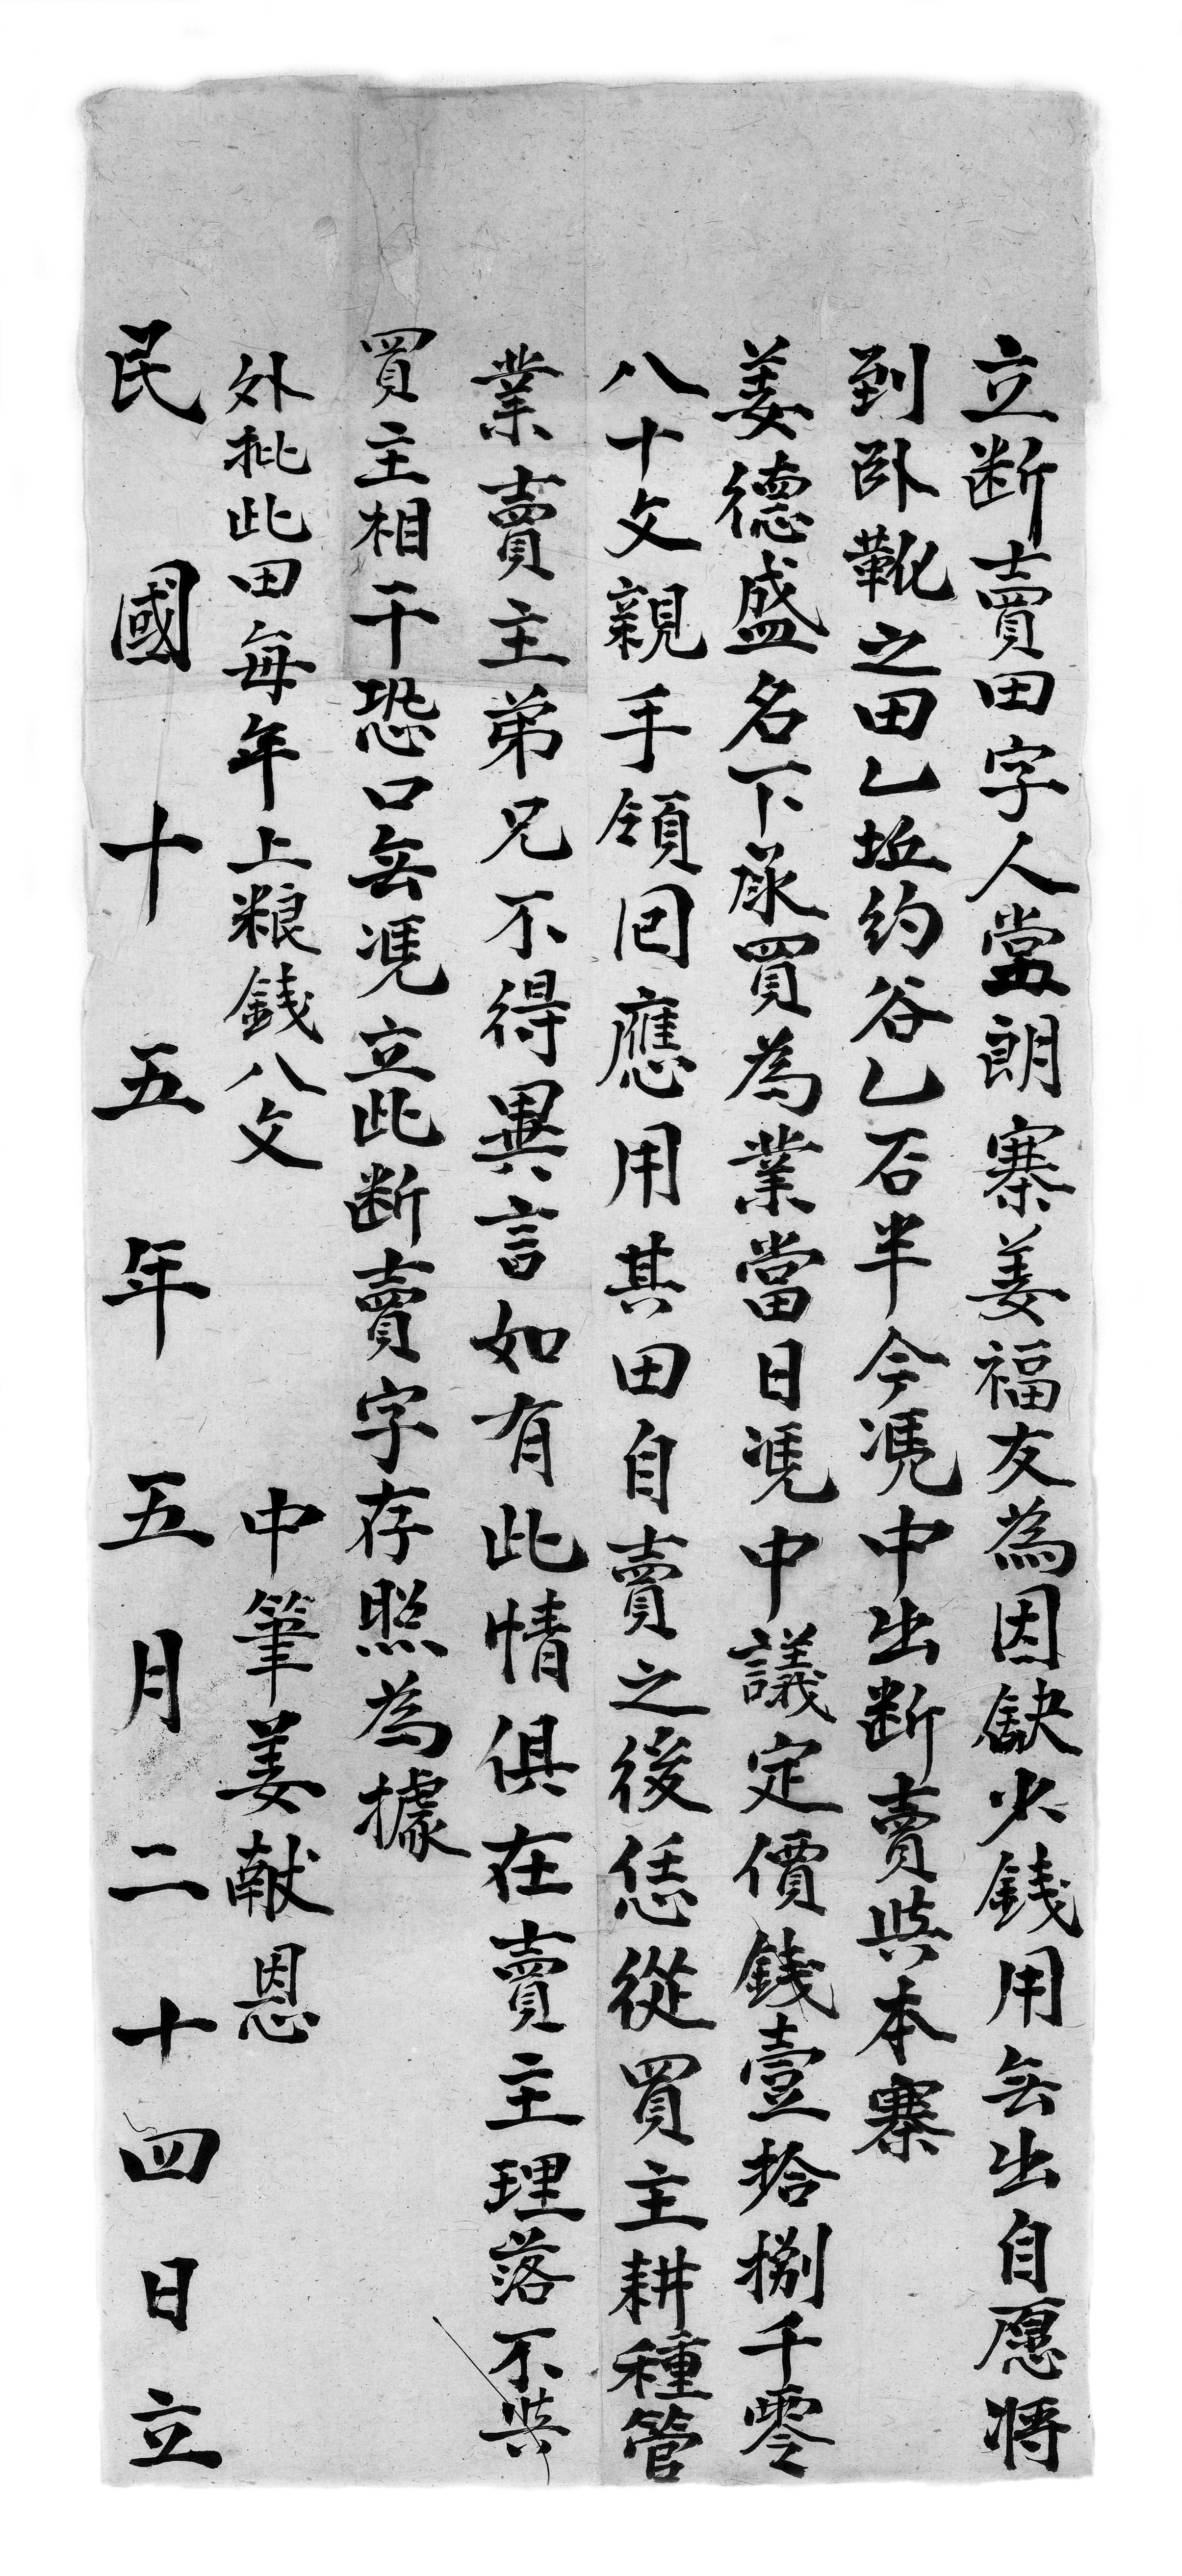 立断賣田字人黨朗寨姜福友為因缺少錢用無出自愿將
到卧靴之田乙坵約谷乙石半今憑中出断賣與本寨
姜德盛名下承買為業當日憑中議定價錢壹拾捌千零
八十文親手領回應用其田自賣之後恁從買主耕種管
業賣主弟兄不得異言如有此情俱在賣主理落不與
買主相干恐口無憑立此断賣字存照為據
外批此田每年上粮錢八文
中筆姜献恩
民國十五年五月二十四日立